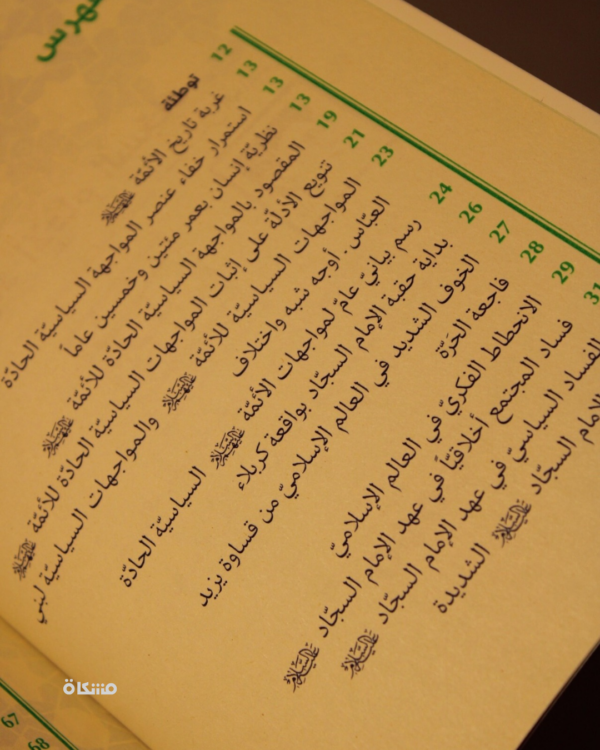 فهرس
توطئة 12
غربة تاريخ الأئمّة 13
استمرار خفاء عنصر المواجهة السياسيّة الحادّة 13
نظريّة إنسان بعمر مئتين وخمسين عاماً 13
المقصود بالمواجهة السياسيّة الحادّة للأئمّة 19
تنويع الأدلّة على إثبات المواجهات السياسيّة الحادّة للأئمّة 21
المواجهات السياسيّة للأئمّة والمواجهات السياسيّة لبني
العبّاس.. أوجه شبه واختلاف 23
رسم بيانيّ عامّ لمواجهات الأئمّة السياسيّة الحادّة 24
بداية حقبة الإمام السجّاد بواقعة كربلاء 26
الخوف الشديد في العالم الإسلاميّ من قساوة يزيد 27
فاجعة الحَرّة 28
الانحطاط الفكريّ في العالم الإسلاميّ 29
فساد المجتمع أخلاقيّاً في عهد الإمام السجّاد 31
الفساد السياسيّ في عهد الإمام السجّاد
الإمام السجّاد الشديدة
67
68
مشكاة